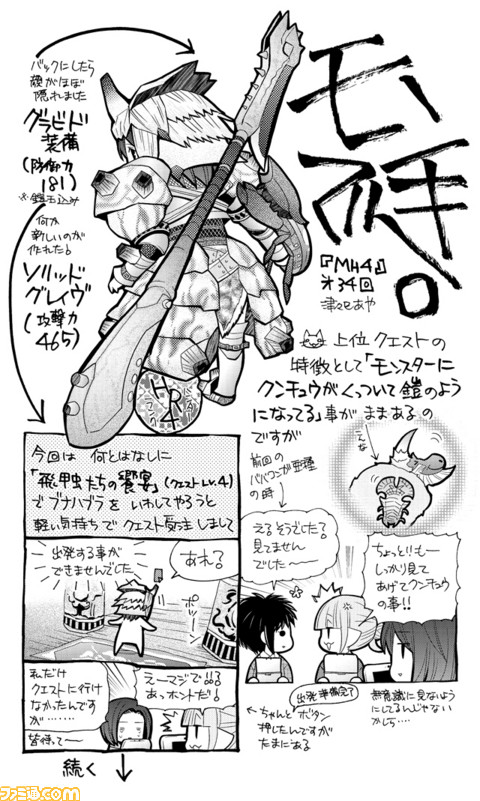 モハ
スキ。
『MH4』
オ34回
津々巳あや
バックにしたら
顔がほぼ
隠れました
グラビド
装備
(防御力
181)
※鎧玉込み
何か
新しいのが
作れたら
ソリッド
グレイヴ
(攻撃力
465)
HR
上位クエストの
特徴として「モンスターに
クンチュウがくっついて鎧のよう
になってる」事がままあるの
ですが
こんな
前回の
ババコンガ亜種
の時
えるそうでした?
見てません
でした〜
ちょっと!!もー
しっかり見て
あげてクンチュウ
の事!!
無意識に見ないよう
にしてるんじゃない
かしら……
今回は 何とはなしに
「飛甲虫たちの饗宴」(クエストLv.4)
でブナハブラを いわしてやろうと
軽い気持ちで クエスト受注しまして
出発する事が
できませんでした
あれ?
ポツーン
私だけ
クエストに行け
なかったんですが
……
皆待って〜
えーマジで!?
あっホントだ!
出発準備完了
←ちゃんとボタン
押したんですが
たまにある
続く
ファミ通.com